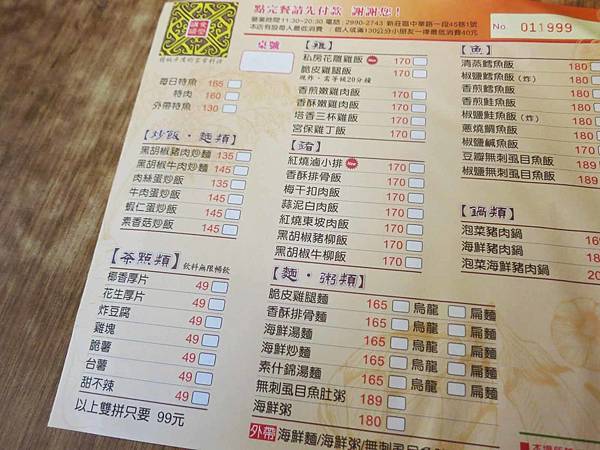 點完餐請先付款 謝謝您！
營業時間11:30~20:30 電話：2990-2743 新莊區中華路一段45巷1號
本店有設每人最低消費 / 個人或滿130公分小朋友一律最低消費40元
No. 011999
桌號
每日特魚 165
特肉 160
外帶特魚 130
【炒飯・麵類】
黑胡椒豬肉炒麵 135
黑胡椒牛肉炒麵 145
肉絲蛋炒飯 135
牛肉蛋炒飯 145
蝦仁蛋炒飯 145
素香菇炒飯 145
【茶點類】飲料無限暢飲
椰香厚片 49
花生厚片 49
炸豆腐 49
雞塊 49
脆薯 49
台薯 49
甜不辣 49
以上雙拼只要 99元
【雞】
私房花雕雞飯 New 170
脆皮雞腿飯 170
現炸，需等候20分鐘
香煎嫩雞肉飯 170
香酥嫩雞肉飯 170
塔香三杯雞飯 170
宮保雞丁飯 170
【豬】
紅燒滷小排 New 170
香酥排骨飯 170
梅干扣肉飯 170
蒜泥白肉飯 170
紅燒東坡肉飯 170
黑胡椒豬柳飯 170
黑胡椒牛柳飯 170
【麵・粥類】
脆皮雞腿麵 165 烏龍 扁麵
香酥排骨麵 165 烏龍 扁麵
海鮮湯麵 165 烏龍 扁麵
海鮮炒麵 165 烏龍 扁麵
素什錦湯麵 165 烏龍 扁麵
無刺虱目魚肚粥 189
海鮮粥 180
外帶 海鮮麵/海鮮粥/無刺虱目
【魚】
清蒸鱈魚飯 180
椒鹽鱈魚飯(炸) 180
香煎鱈魚飯 180
香煎鮭魚飯 180
椒鹽鮭魚飯(炸) 180
蔥燒鯛魚飯 180
椒鹽鹹魚飯 180
豆瓣無刺虱目魚飯 189
椒鹽無刺虱目魚飯 189
【鍋類】
泡菜豬肉鍋
海鮮豬肉鍋
泡菜海鮮豬肉鍋